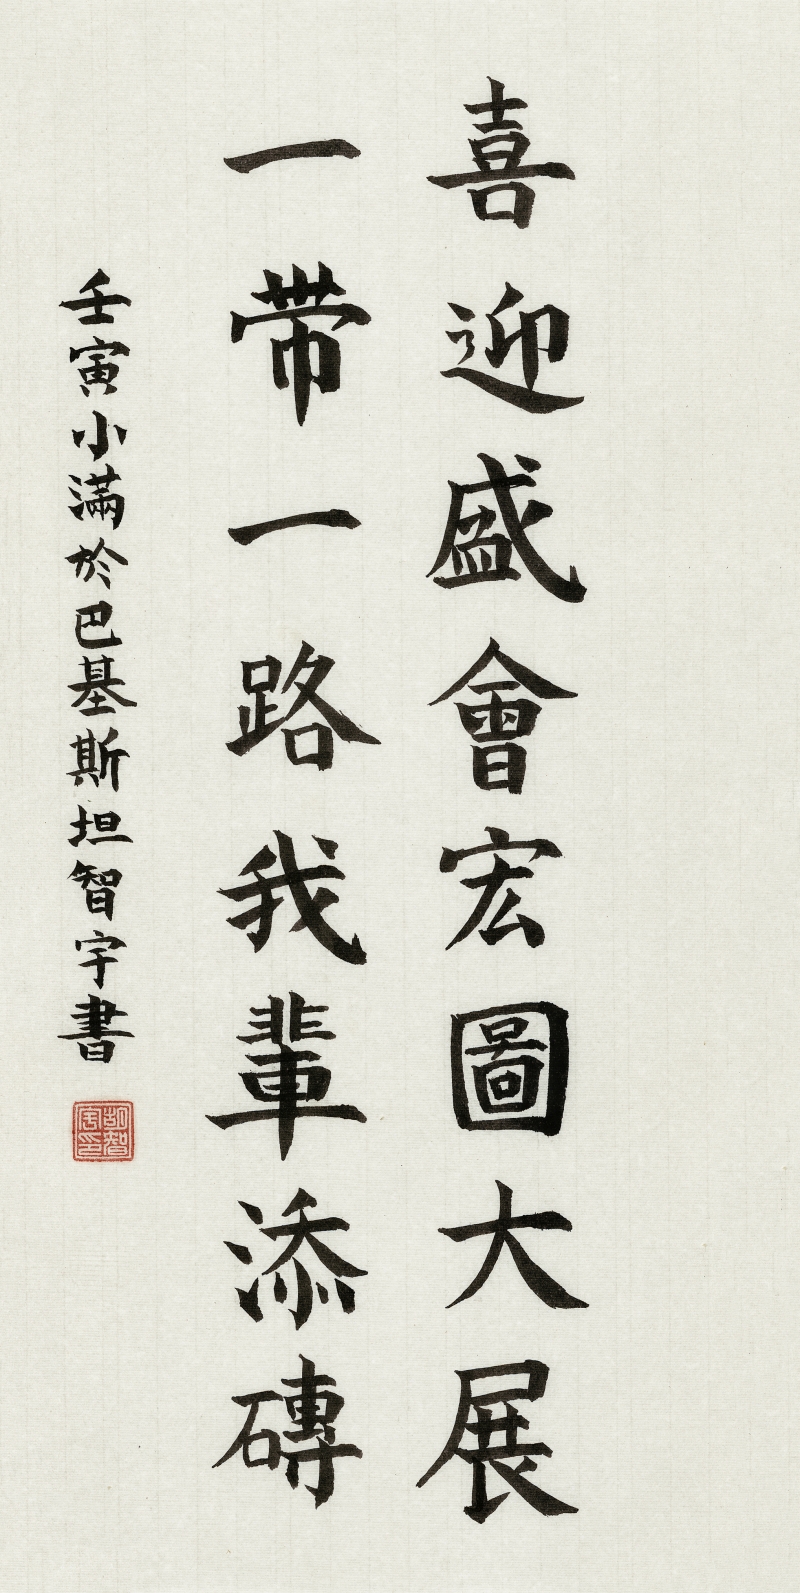 喜迎盛會宏圖大展
一帶一路我輩添磚
壬寅小滿於巴基斯坦智宇書
胡智宇印